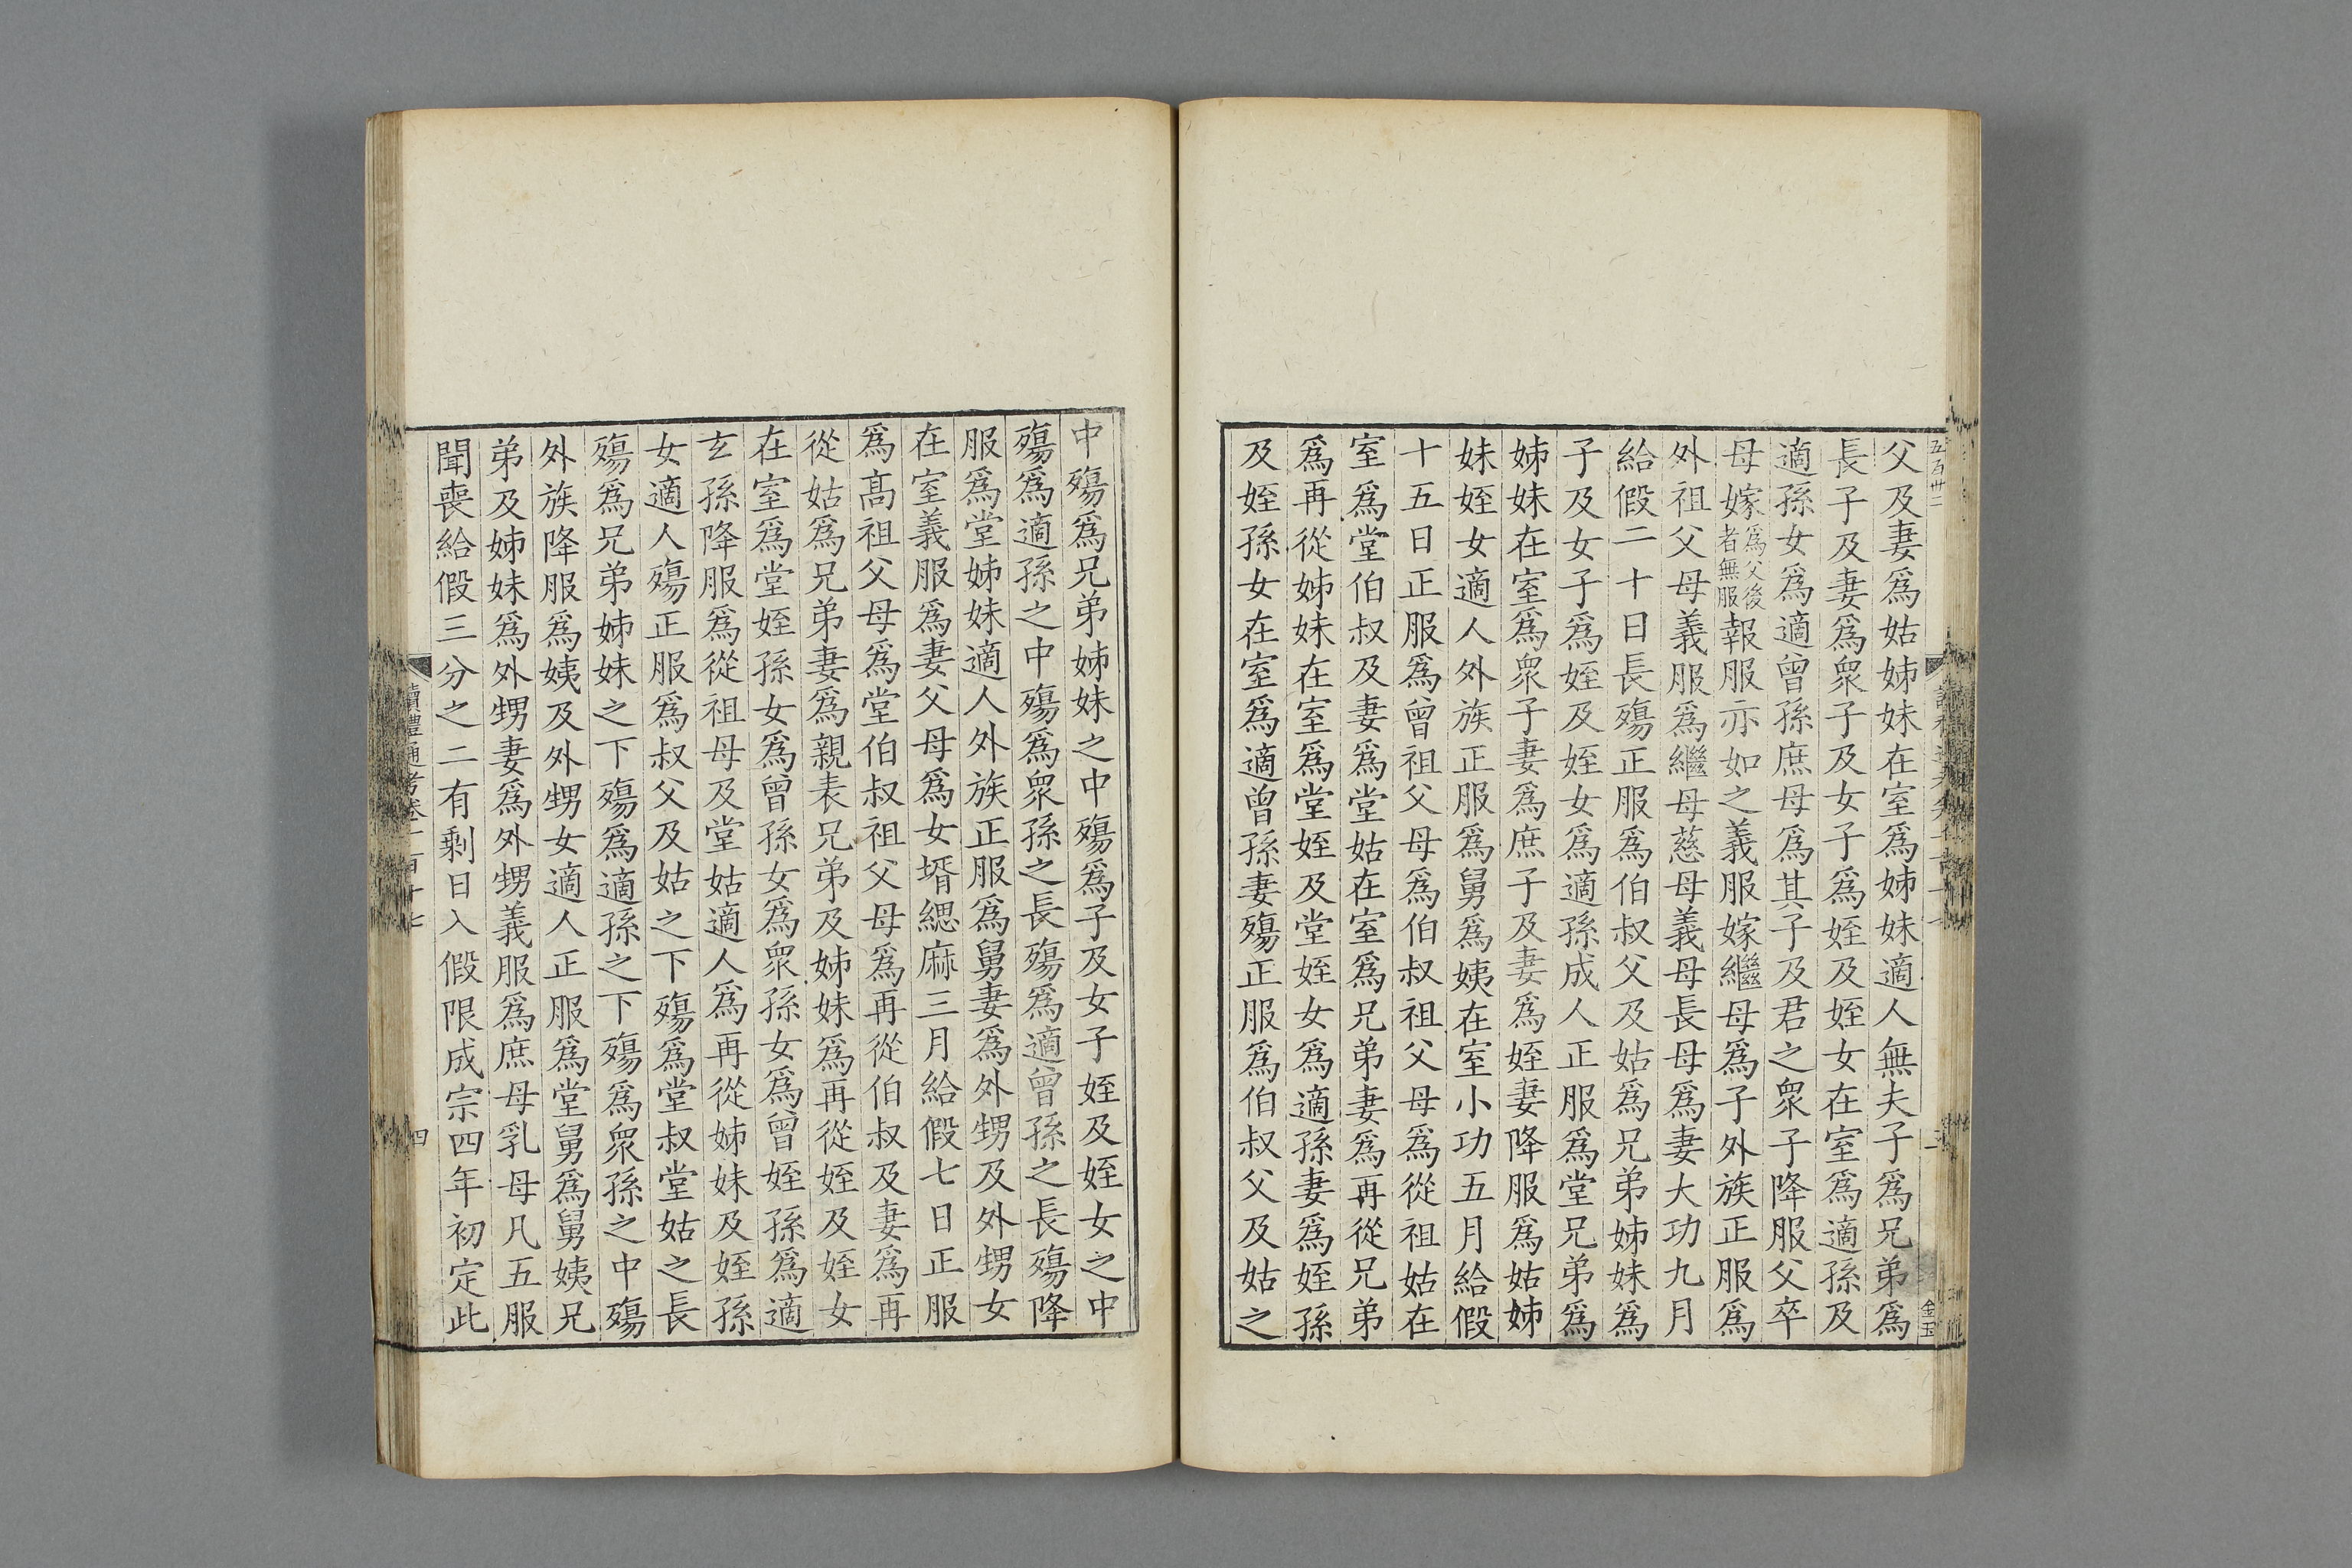 五百卅二
父及妻爲姑姊妹在室爲姊妹適人無夫子爲兄弟爲
長子及妻爲衆子及女子爲姪及姪女在室爲適孫及
適孫女爲適曾孫庶母爲其子及君之衆子降服父卒
母嫁爲父後者無服報服亦如之義服嫁繼母爲子外族正服爲
外祖父母義服爲繼母慈母義母長母爲妻大功九月
給假二十日長殤正服爲伯叔父及姑爲兄弟姊妹爲
子及女子爲姪及姪女爲適孫成人正服爲堂兄弟爲
姊妹在室爲衆子妻爲庶子及妻爲姪妻降服爲姑姊
妹姪女適人外族正服爲舅爲姨在室小功五月給假
十五日正服爲曾祖父母爲伯叔祖父母爲從祖姑在
室爲堂伯叔及妻爲堂姑在室爲兄弟妻爲再從兄弟
爲再從姊妹在室爲堂姪及堂姪女爲適孫妻爲姪孫
及姪孫女在室爲適曾孫妻殤正服爲伯叔父及姑之
金玉
中殤爲兄弟姊妹之中殤爲子及女子姪及姪女之中
殤爲適孫之中殤爲衆孫之長殤爲適曾孫之長殤降
服爲堂姊妹適人外族正服爲舅妻爲外甥及外甥女
在室義服爲妻父母爲女壻緦麻三月給假七日正服
爲高祖父母爲堂伯叔祖父母爲再從伯叔及妻爲再
從姑爲兄弟妻爲親表兄弟及姊妹爲再從姪及姪女
在室爲堂姪孫女爲曾孫女爲衆孫女爲曾姪孫爲適
玄孫降服爲從祖母及堂姑適人爲再從姊妹及姪孫
女適人殤正服爲叔父及姑之下殤爲堂叔堂姑之長
殤爲兄弟姊妹之下殤爲適孫之下殤爲衆孫之中殤
外族降服爲姨及外甥女適人正服爲堂舅爲舅姨兄
弟及姊妹爲外甥妻爲外甥義服爲庶母乳母凡五服
聞喪給假三分之二有剩日入假限成宗四年初定此
讀禮通考卷一百十七
四